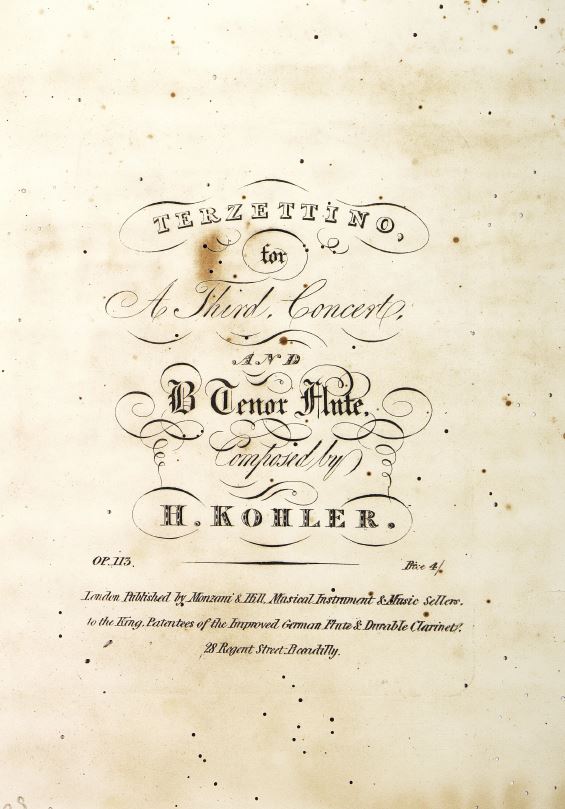 TERZETTINO,
for
A Third, Concert,
AND
B Tenor Flute,
Composed by
H. KOHLER.
OP. 113.
Price 4/
London, Published by Monzani & Hill, Musical Instrument & Music Sellers,
to the King, Patentees of the Improved German Flute & Durable Clarinet,
28 Regent Street Piccadilly.